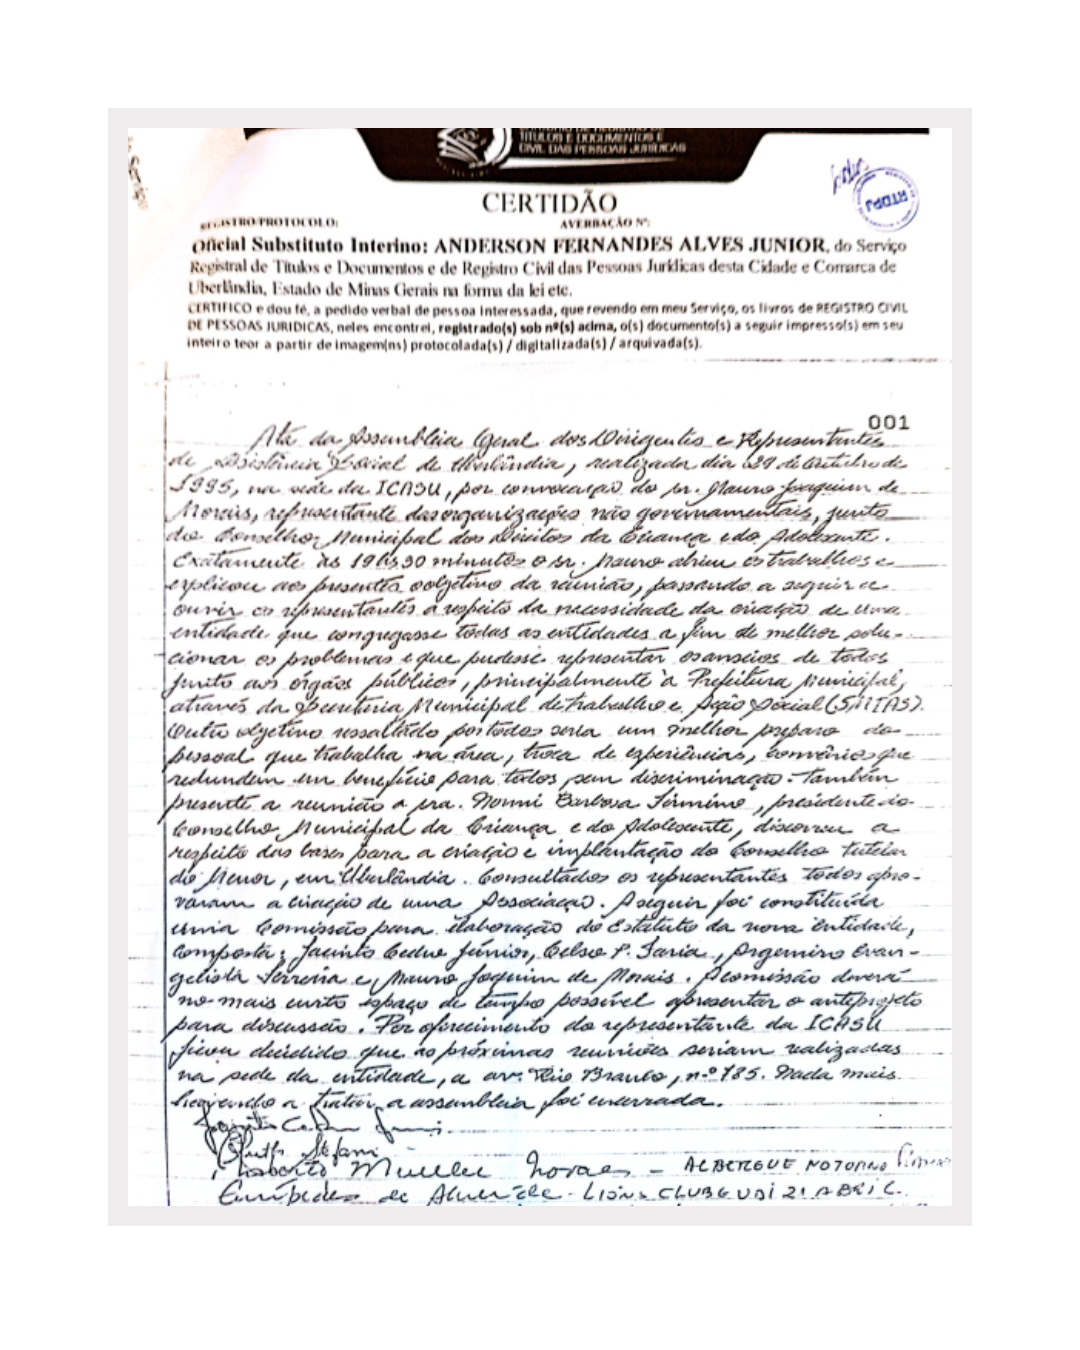 TÍTULOS E DOCUMENTOS E
CIVIL DAS PESSOAS JURÍDICAS
RTDPJ
CERTIDÃO
REGISTRO/PROTOCOLO:
AVERBAÇÃO Nº:
Oficial Substituto Interino: ANDERSON FERNANDES ALVES JUNIOR, do Serviço
Registral de Títulos e Documentos e de Registro Civil das Pessoas Jurídicas desta Cidade e Comarca de
Uberlândia, Estado de Minas Gerais na forma da lei etc.
CERTIFICO e dou fé, a pedido verbal de pessoa interessada, que revendo em meu Serviço, os livros de REGISTRO CIVIL
DE PESSOAS JURIDICAS, neles encontrei, registrado(s) sob nº(s) acima, o(s) documento(s) a seguir impresso(s) em seu
inteiro teor a partir de imagem(ns) protocolada(s) / digitalizada(s) / arquivada(s).
001
Ata da Assembléia Geral dos Dirigentes e Representantes
de Assistência Social de Uberlândia, realizada dia 29 de Outubro de
1995, na sede da ICASU, por convocação do sr. Mauro Joaquim de
Morais, representante das organizações não governamentais, junto
do Conselho Municipal dos Direitos da Criança e do Adolescente.
Exatamente às 19hs,30 minutos o sr. Mauro abriu os trabalhos e
explicou aos presentes o objetivo da reunião, passando a seguir a
ouvir os representantes a respeito da necessidade da criação de uma
entidade que congregasse todas as entidades a fim de melhor solu-
cionar os problemas e que pudesse representar os anseios de todos
junto aos órgãos públicos, principalmente à Prefeitura Municipal,
através da Secretaria Municipal de Trabalho e Ação Social (SMTAS).
Outro objetivo ressaltado por todos seria um melhor preparo do
pessoal que trabalha na área, troca de experiências, convênios que
redundem em benefício para todos, sem discriminação. Também
presente a reunião a sra. Nonni Barbosa Firmino, presidente do
Conselho Municipal da Criança e do Adolescente, discorreu a
respeito das bases para a criação e implantação do Conselho Tutelar
do Menor, em Uberlândia. Consultados os representantes todos apro-
varam a criação de uma Associação. A seguir foi constituída
uma Comissão para elaboração do Estatuto da nova entidade,
composta: Jacinto Cedro Júnior, Celso P. Faria, Argemiro Evan-
gelista Ferreira e, Mauro Joaquim de Morais. A comissão deverá
no mais curto espaço de tempo possível apresentar o anteprojeto
para discussão. Por oferecimento do representante da ICASU
ficou decidido que as próximas reuniões seriam realizadas
na sede da entidade, a av. Rio Branco, nº 785. Nada mais
havendo a tratar, a assembléia foi encerrada.
Stefani
Mueller Novaes - ALBERGUE NOTURNO
Eurípedes de Almeida - LIONS CLUBE UDI 21 ABRIL.